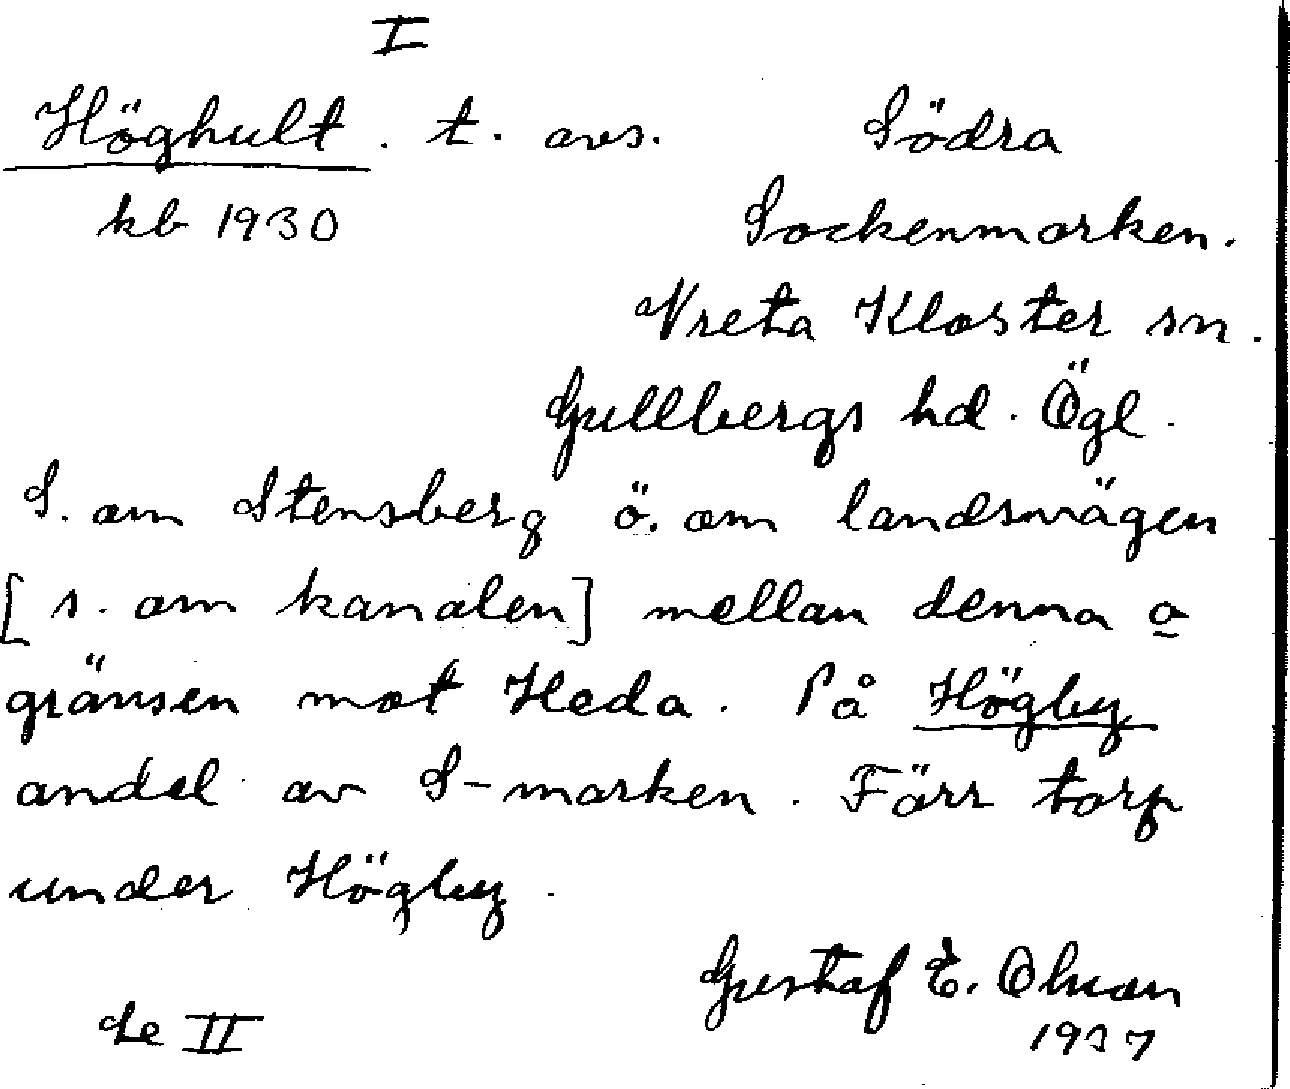 I
Höghult. t. avs. Södra
kb 1930 Sockenmarken.
Vreta Kloster sn.
Gullbergs hd. Ögl.
S. om Stensberg ö. om landsvägen
[s. om kanalen] mellan denna o
gränsen mot Heda. På Högby
andel av S-marken. Förr torp
under Högby.
Gustaf E. Olsson
se II 1937